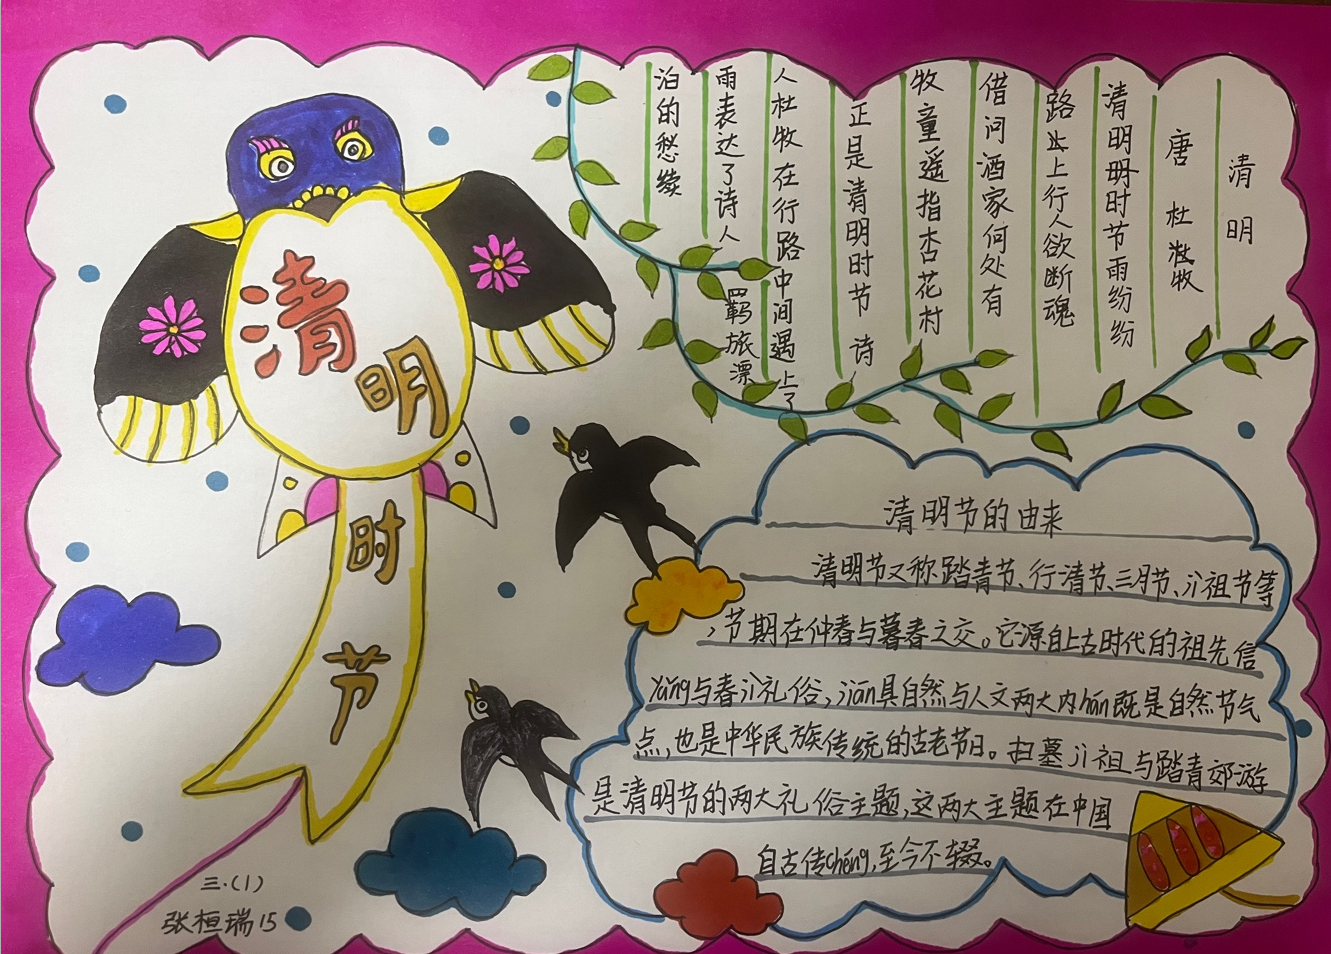 清明
时
节
清明
唐 杜牧
清明时节雨纷纷
路上行人欲断魂
借问酒家何处有
牧童遥指杏花村
正是清明时节 诗
人杜牧在行路中间遇上了
雨表达了诗人 羁旅漂
泊的愁绪
清明节的由来
清明节又称踏青节、行清节、三月节、ji祖节等
,节期在仲春与暮春之交。它源自上古时代的祖先信
yǎng与春ji礼俗,jiān具自然与人文两大内hán既是自然节气
点,也是中华民族传统的古老节日。扫墓ji祖与踏青郊游
是清明节的两大礼俗主题,这两大主题在中国
自古传chéng,至今不辍。
三.(1)
张桓瑞15